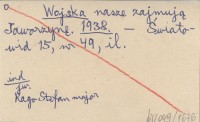 Wojska nasze zajmują
Jaworzynę. 1938. – Świato-
wid 15, nr 49, il.
ind
jw.
Zago Stefan major